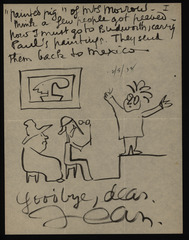 "painted pig" of Mrs Morrow — I
think a few people got peeved —
now I must go to
Paul's paintings. They send
them back to Mexico
Goodbye, dear.
Jean.